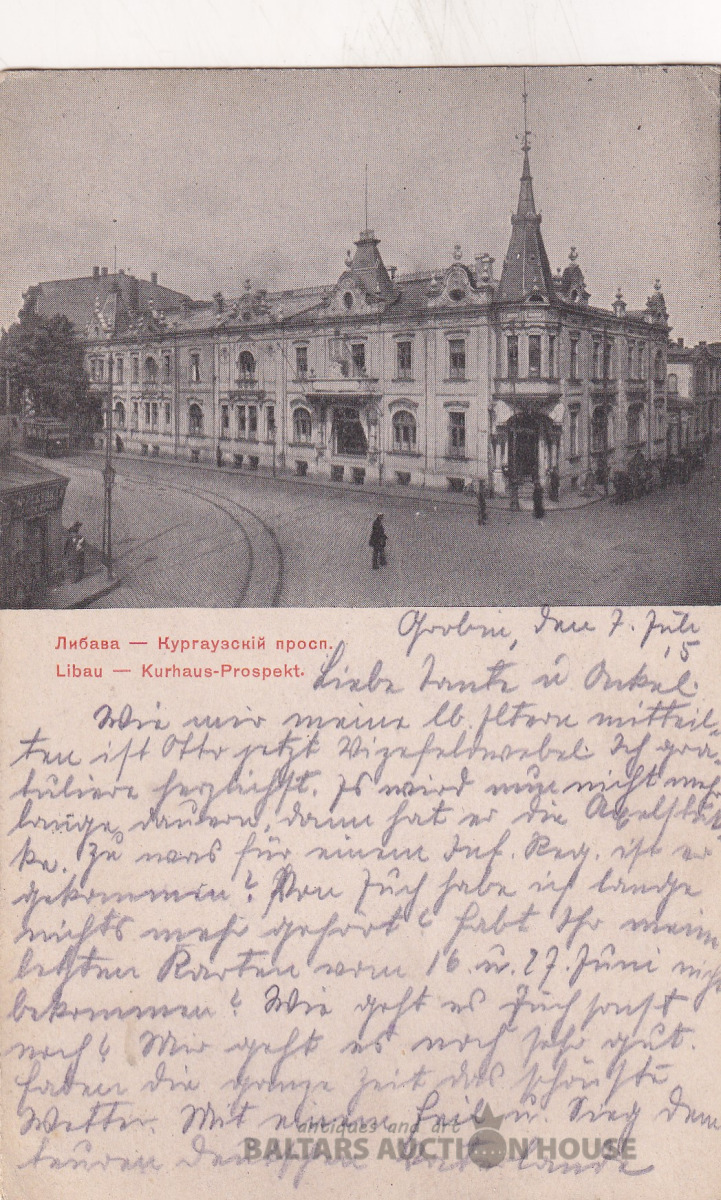 Либава — Кургаузскій просп.
Libau — Kurhaus-Prospekt.
Grobin, den 7. Juli
15
Liebe Tante u Onkel.
Wie mir meine lb. Eltern mitteil-
ten ist Otto jetzt Vizefeldwebel. Ich gra-
tuliere herzlichst. Es wird nun nicht mehr
lange dauern, dann hat er die Axelstük-
ke. Zu was für einem Inf. Reg. ist er
gekommen? Von Euch habe ich lange
nichts mehr gehört? Habt Ihr meine
letzten Karten vom 16. u. 27. Juni nicht
bekommen? Wie geht es Euch sonst
noch? Mir geht es noch sehr gut.
Haben die ganze Zeit das schönste
Wetter. Mit einem Heil u. Sieg dem
teuren deutschen Vaterlande
antiques and art
BALTARS AUCTION HOUSE